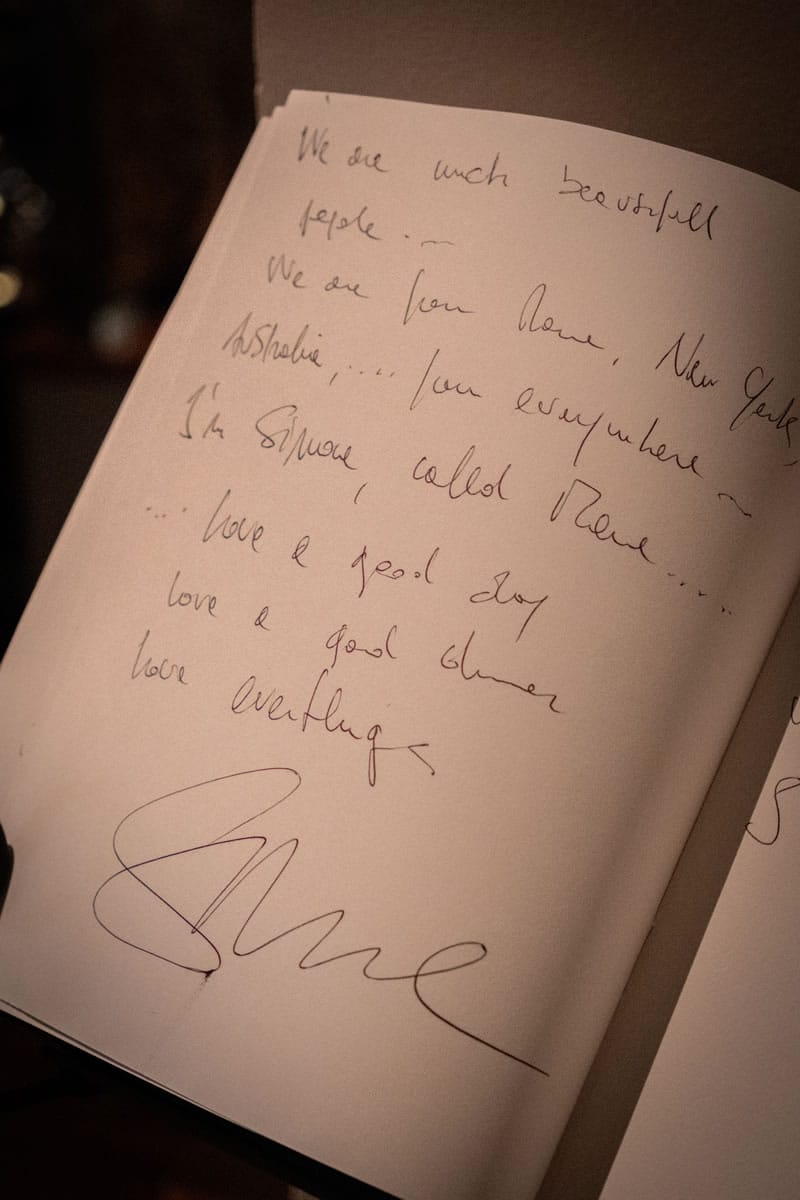 We are much beautifull
people ...
We are from Rome, New York,
Australia, .... from everywhere ~
I'm Simone, called Mone .....
... have a good day
have a good dinner
have everthing
Simone